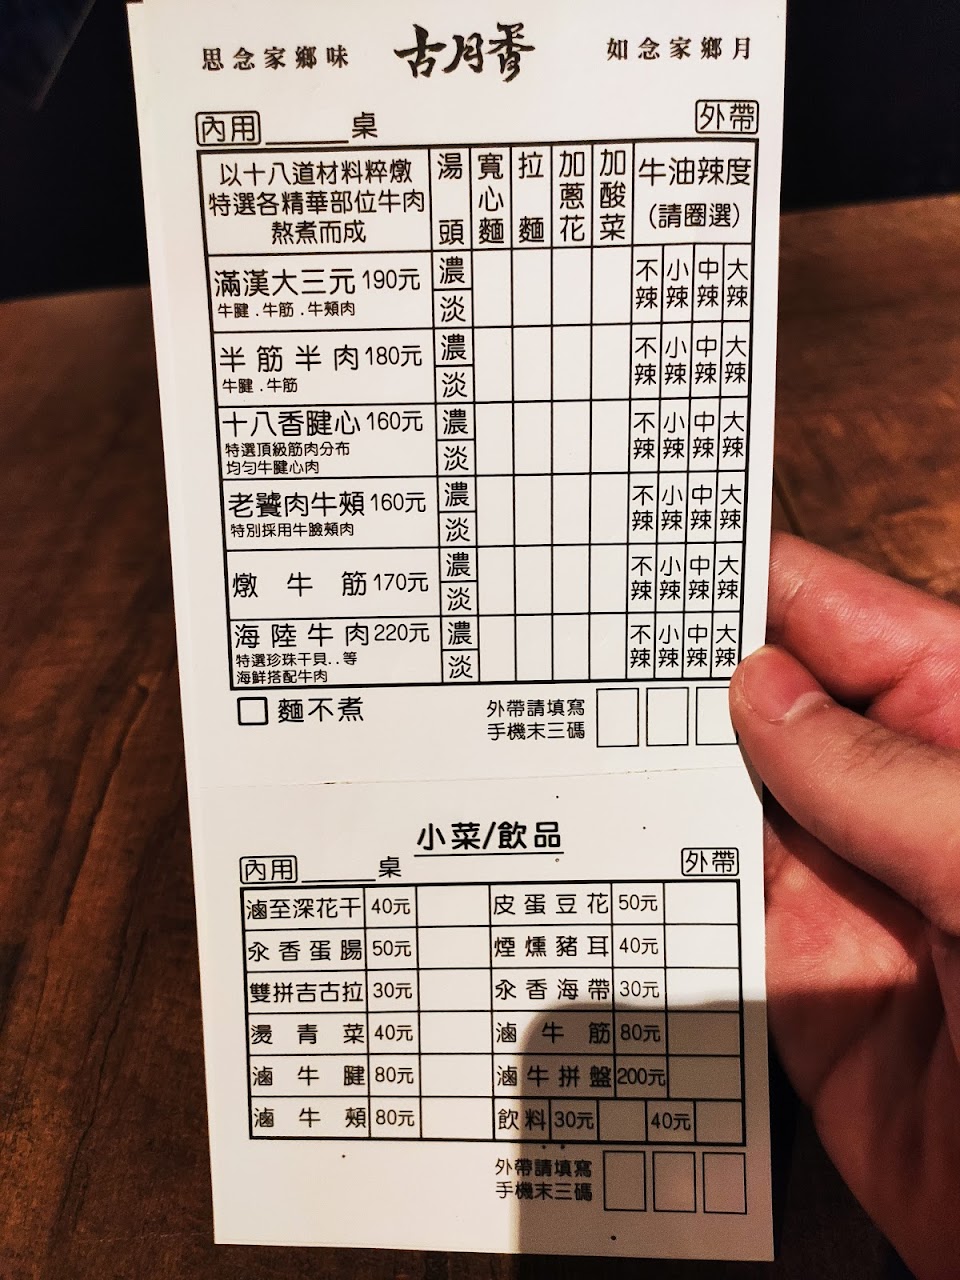 思念家鄉味 古月香 如念家鄉月
內用 桌 外帶
以十八道材料粹燉
特選各精華部位牛肉
熬煮而成
湯頭 寬心麵 拉麵 加蔥花 加酸菜 牛油辣度
(請圈選)
滿漢大三元 190元 濃 不辣 小辣 中辣 大辣
牛腱.牛筋.牛頰肉 淡
半筋半肉 180元 濃 不辣 小辣 中辣 大辣
牛腱.牛筋 淡
十八香腱心 160元 濃 不辣 小辣 中辣 大辣
特選頂級筋肉分布 淡
均勻牛腱心肉
老饕肉牛頰 160元 濃 不辣 小辣 中辣 大辣
特別採用牛臉頰肉 淡
燉牛筋 170元 濃 不辣 小辣 中辣 大辣
淡
海陸牛肉 220元 濃 不辣 小辣 中辣 大辣
特選珍珠干貝..等 淡
海鮮搭配牛肉
麵不煮 外帶請填寫
手機末三碼
小菜/飲品
內用 桌 外帶
滷至深花干 40元 皮蛋豆花 50元
汆香蛋腸 50元 煙燻豬耳 40元
雙拼吉古拉 30元 汆香海帶 30元
燙青菜 40元 滷牛筋 80元
滷牛腱 80元 滷牛拼盤 200元
滷牛頰 80元 飲料 30元 40元
外帶請填寫
手機末三碼